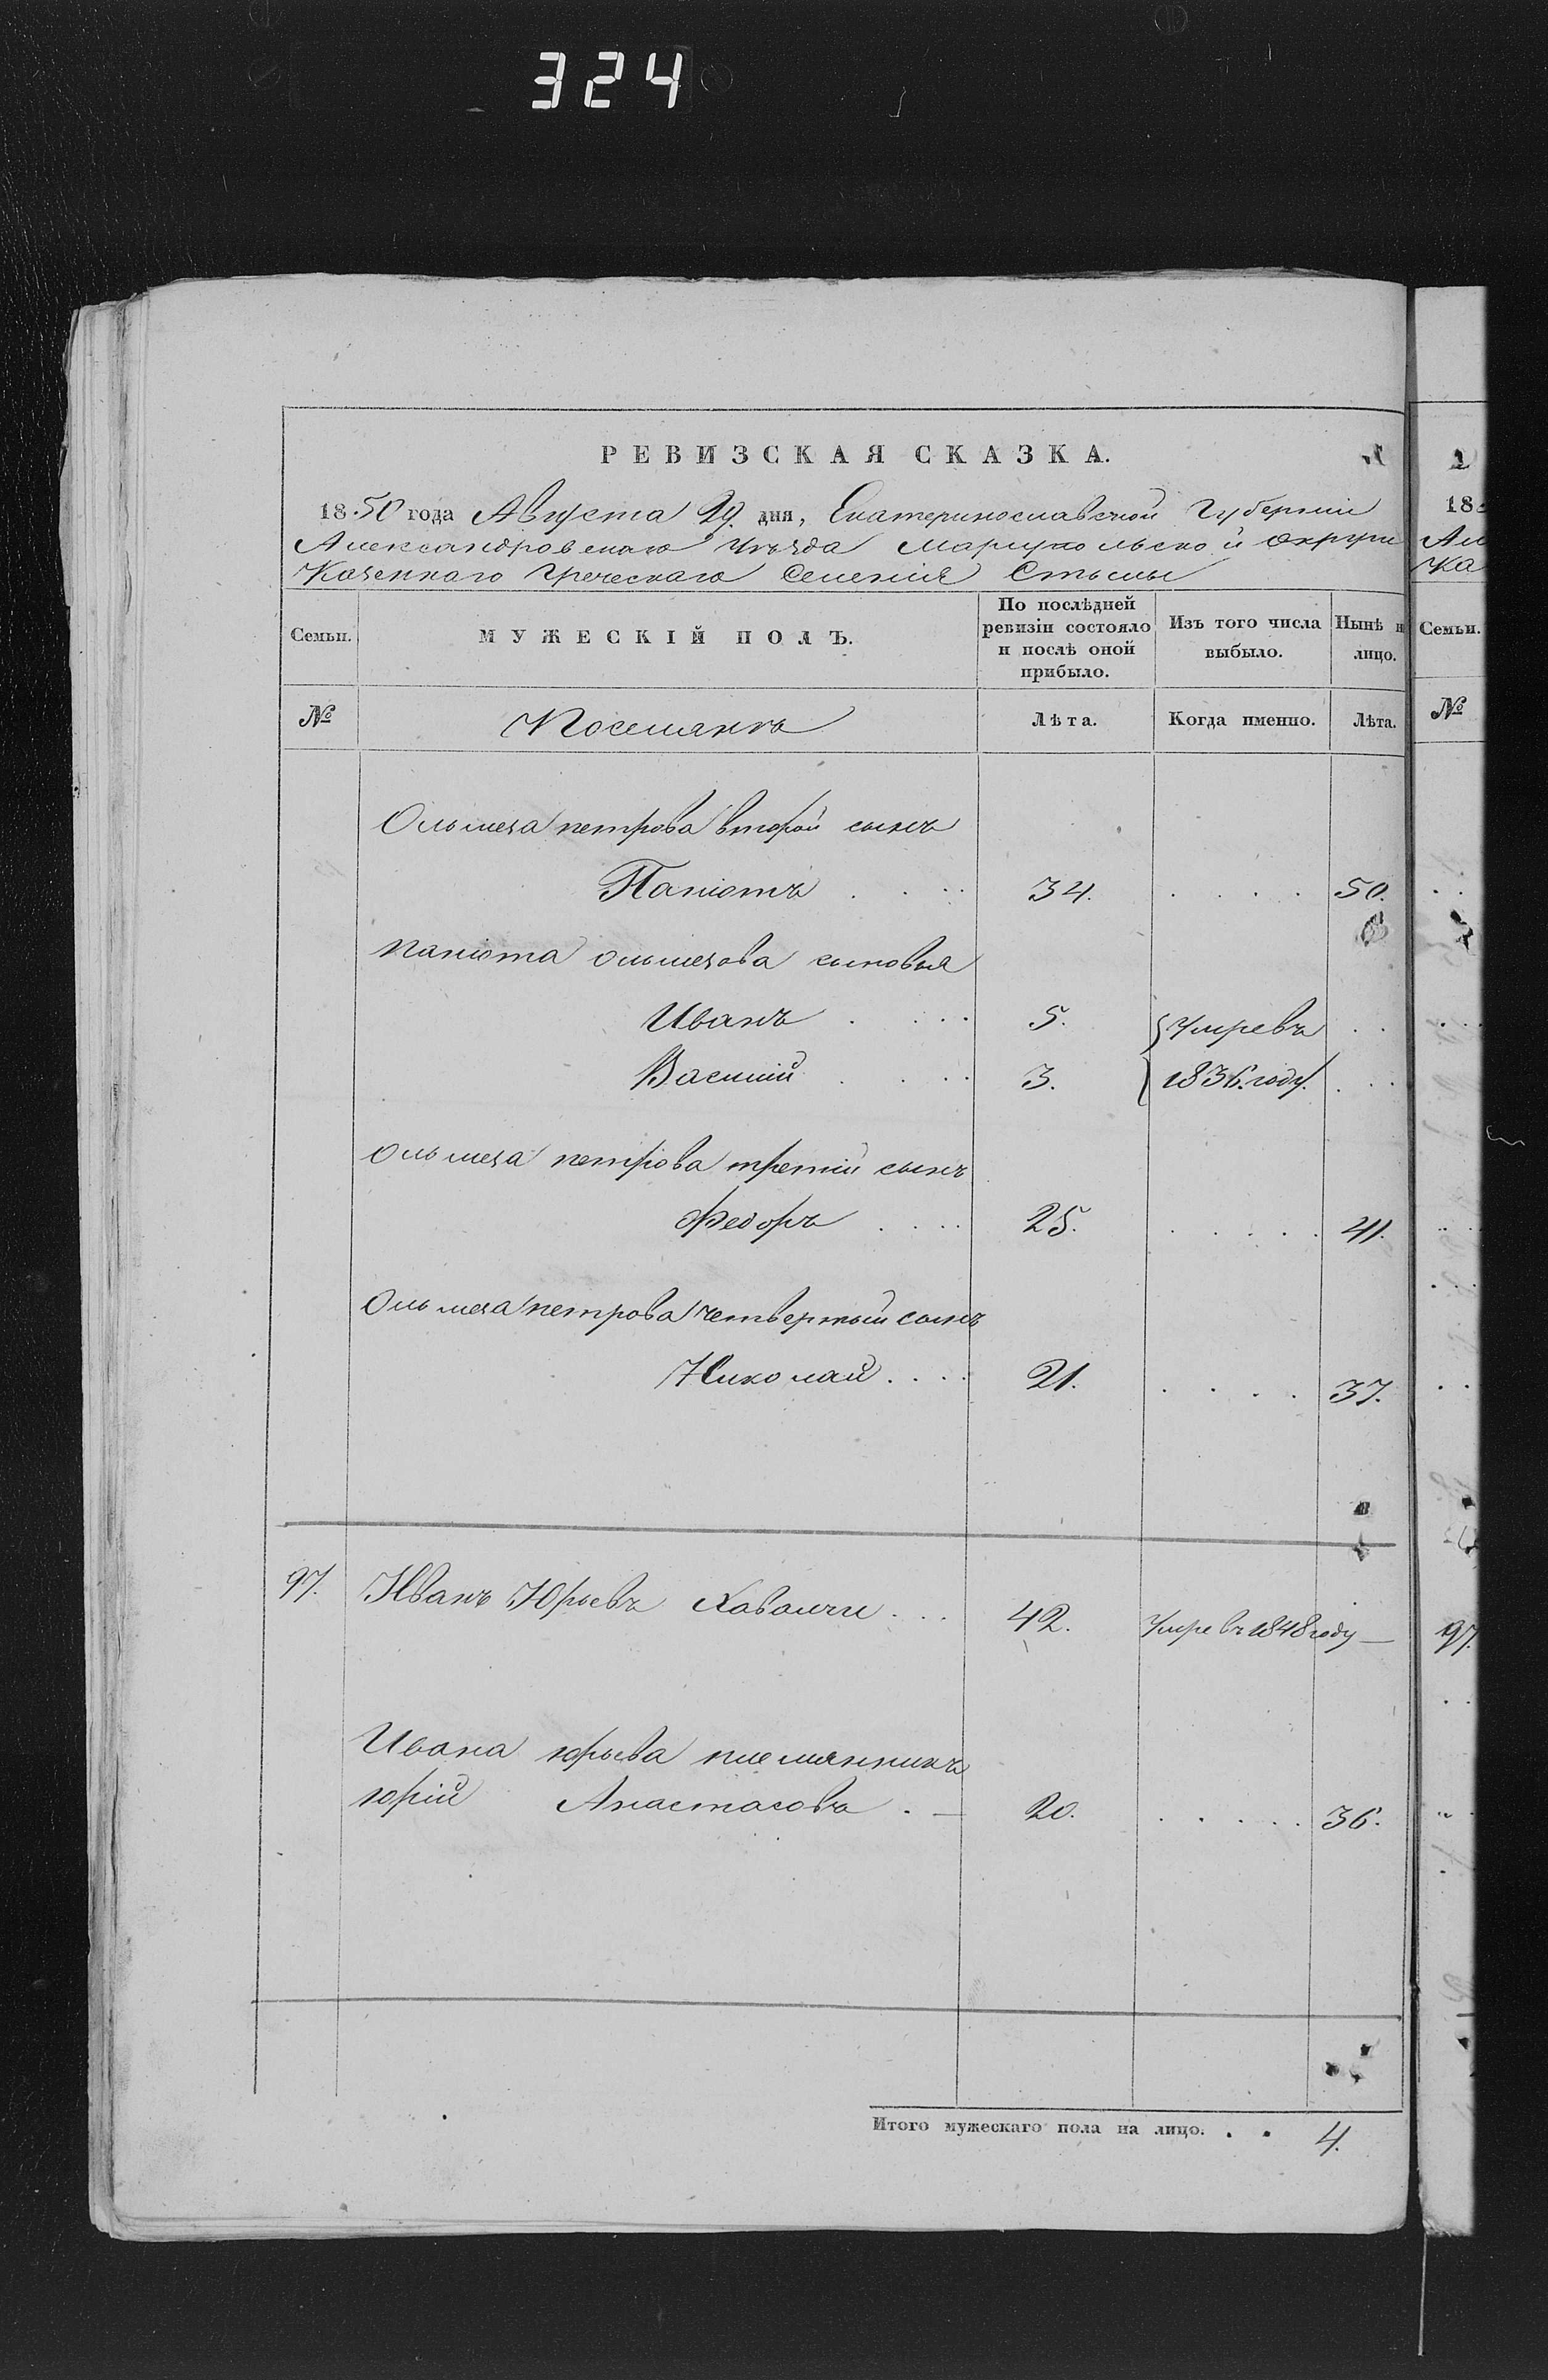 324
РЕВИЗСКАЯ СКАЗКА.
1850 года Августа 29. дня, Екатеринославской Губерніи
Александровскаго Уѣзда Маріупольской округи
Казеннаго Греческаго Селенія Стылы
Семьи. МУЖЕСКІЙ ПОЛЪ. По послѣдней ревизіи состояло и послѣ оной прибыло. Изъ того числа выбыло. Нынѣ н лицо.
№ Поселянъ Лѣта. Когда именно. Лѣта.
Ольмеза петрова второй сынъ
Панютъ . . . . 34. . . . . 50.
Панюта ольмезова сыновья
Иванъ . . . . 5. Умре въ . .
Василий . . . . 3. 1836. году. . . .
Ольмеза петрова третий сынъ
Федоръ . . . . 25. . . . . . 41.
Ольмеза петрова четвертый сынъ
Николай . . . . 21. . . . . 37.
97. Иванъ Юрьевъ Хаваличи . . . 42. Умре въ 1848 году —
Ивана юрьева племянникъ
юрій Анастасовъ . — 20. . . . . . 36.
Итого мужескаго пола на лицо. . . 4.
18
Ал
Ка
Семьи.
№
97.